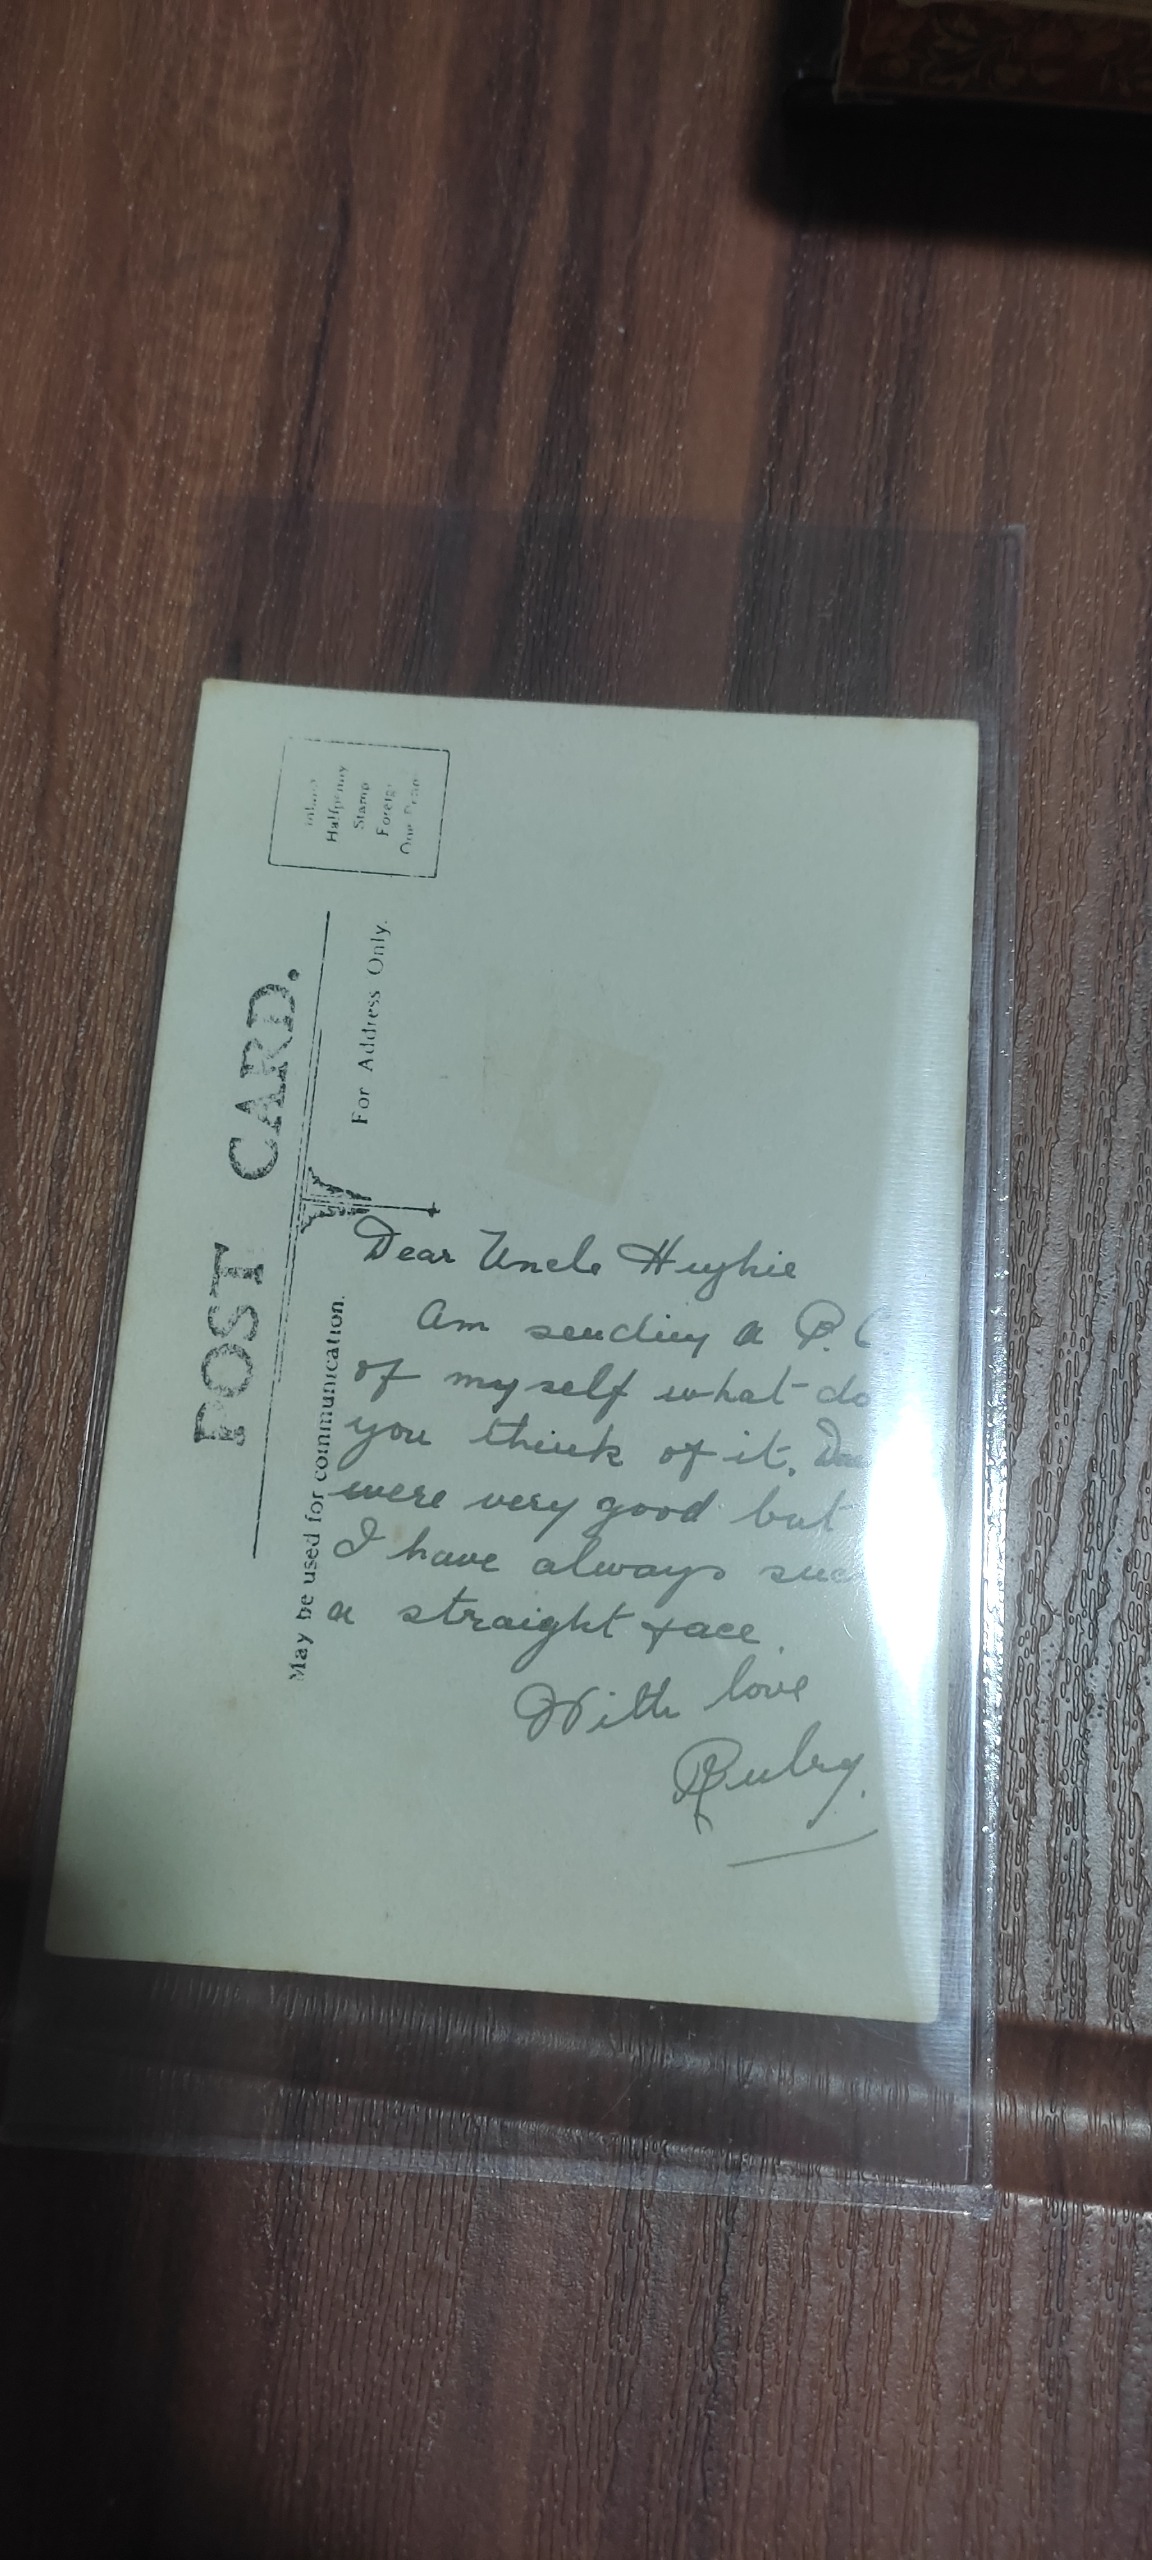 POST CARD.
May be used for communication.
For Address Only.
Halfpenny
Stamp
Dear Uncle Hughie
Am sending a P.
of myself what do
you think of it.
were very good but
I have always
a straight face.
With love
Ruby.